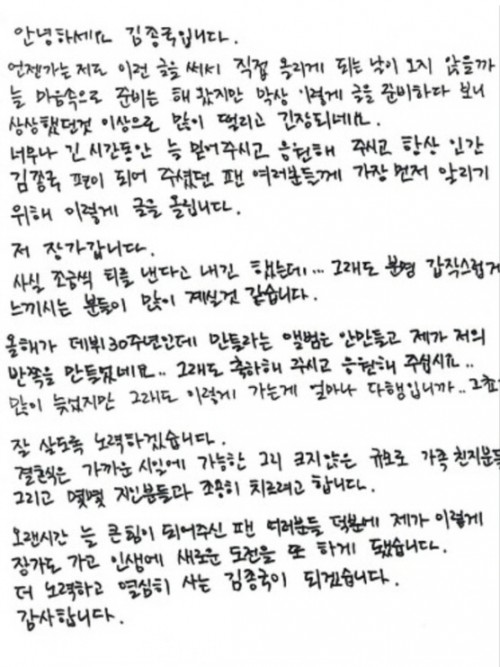 안녕하세요 김종국입니다.
언젠가는 저도 이런 글을 써서 직접 올리게 되는 날이 오지 않을까
늘 마음속으로 준비는 해 왔지만 막상 이렇게 글을 준비하다 보니
상상했던것 이상으로 많이 떨리고 긴장되네요.
너무나 긴 시간동안 늘 믿어주시고 응원해 주시고 항상 인간
김종국 편이 되어 주셨던 팬 여러분들께 가장 먼저 알리기
위해 이렇게 글을 올립니다.
저 장가갑니다.
사실 조금씩 티를 낸다고 내긴 했는데... 그래도 분명 갑작스럽게
느끼시는 분들이 많이 계실것 같습니다.
올해가 데뷔30주년인데 만들라는 앨범은 안만들고 제가 저의
반쪽을 만들었네요.. 그래도 축하해 주시고 응원해 주십시요..
많이 늦었지만 그래도 이렇게 가는게 얼마나 다행입니까.. 그쵸?
잘 살도록 노력하겠습니다.
결혼식은 가까운 시일에 가능한 그리 크지않은 규모로 가족 친지분들
그리고 몇몇 지인분들과 조용히 치르려고 합니다.
오랜시간 늘 큰힘이 되어주신 팬 여러분들 덕분에 제가 이렇게
장가도 가고 인생에 새로운 도전을 또 하게 됐습니다.
더 노력하고 열심히 사는 김종국이 되겠습니다.
감사합니다.